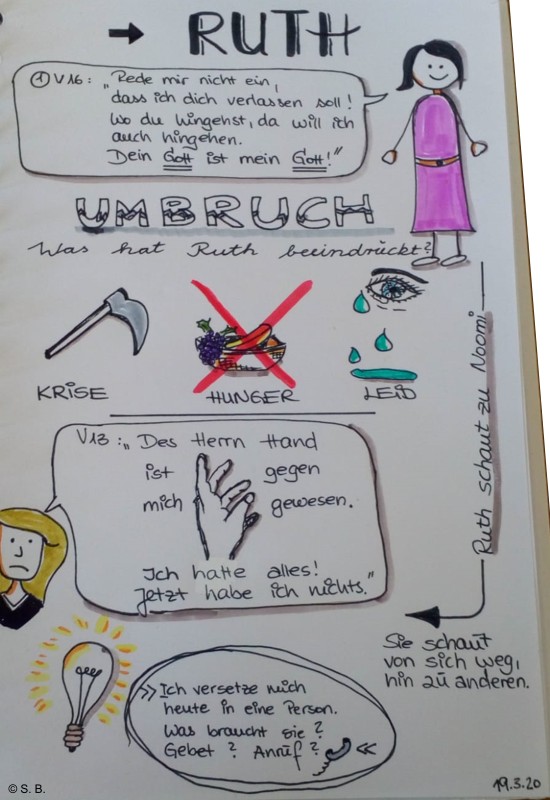 → RUTH
① V16: „Rede mir nicht ein,
dass ich dich verlassen soll!
Wo du hingehst, da will ich
auch hingehen.
Dein Gott ist mein Gott!"
UMBRUCH
Was hat Ruth beeindrückt?
KRISE
HUNGER
LEID
Ruth schaut zu Noomi
V13: „Des Herrn Hand
ist gegen
mich gewesen.
Ich hatte alles!
Jetzt habe ich nichts."
Sie schaut
von sich weg,
hin zu anderen.
»Ich versetze mich
heute in eine Person.
Was braucht sie?
Gebet? Anruf? «
19.3.20
© S. B.